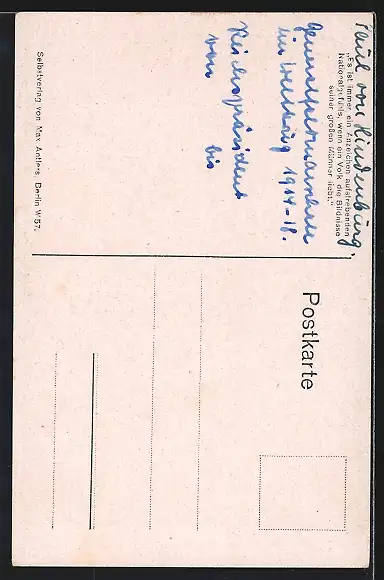 Paul von Hindenburg,
„Es ist immer ein Anzeichen aufstrebenden
Nationalgefühls, wenn ein Volk die Bildnisse
seiner großen Männer liebt."
Generalfeldmarschall
im Weltkrieg 1914-18.
Reichspräsident
von bis
Selbstverlag von Max Antlers, Berlin W 57.
Postkarte